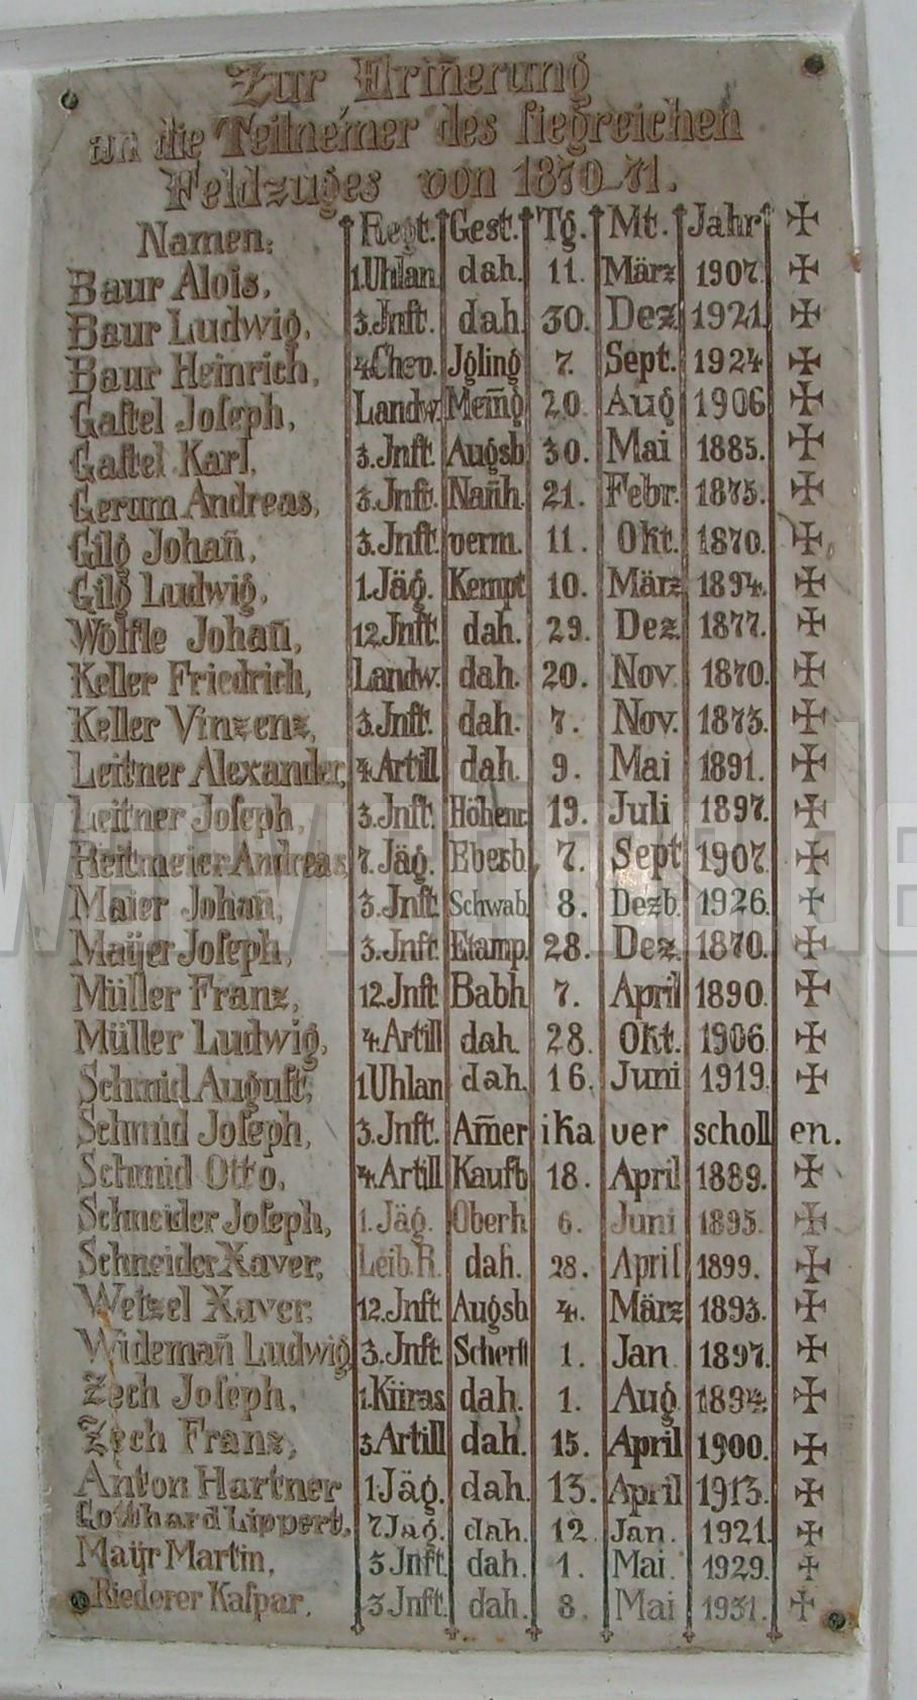 Zur Erin̄erung
an die Teilnehmer des siegreichen
Feldzuges von 1870-71.
Namen: Regt. Gest. Tg. Mt. Jahr ✠
Baur Alois, 1.Uhlan. dah. 11. März 1907. ✠
Baur Ludwig, 3.Jnft. dah. 30. Dez. 1921. ✠
Baur Heinrich, 4.Chev. Jgling 7. Sept. 1924 ✠
Gastel Joseph, Landw. Mem̄g 20. Aug 1906 ✠
Gastel Karl, 3.Jnft. Augsb 30. Mai 1885. ✠
Gerum Andreas, 3.Jnft. Nan̄h. 21. Febr. 1875. ✠
Gilg Johan̄, 3.Jnft. verm. 11. Okt. 1870. ✠
Gilg Ludwig, 1.Jäg. Kempt 10. März 1894. ✠
Wölfle Johan̄, 12.Jnft. dah. 29. Dez. 1877. ✠
Keller Friedrich, Landw. dah. 20. Nov. 1870. ✠
Keller Vinzenz, 3.Jnft. dah. 7. Nov. 1873. ✠
Leitner Alexander, 4.Artill dah. 9. Mai 1891. ✠
Leitner Joseph, 3.Jnft. Höhenr. 19. Juli 1897. ✠
Reitmeier Andreas, 7.Jäg. Ebersb, 7. Sept 1907. ✠
Maier Johan̄, 3.Jnft. Schwab. 8. Dezb. 1926. ✠
Maÿer Joseph, 3.Jnft. Etamp. 28. Dez. 1870. ✠
Müller Franz, 12.Jnft. Babh 7. April 1890. ✠
Müller Ludwig, 4.Artill dah. 28. Okt. 1906. ✠
Schmid August, 1Uhlan dah. 16. Juni 1919. ✠
Schmid Joseph, 3.Jnft. Am̄erika verschollen.
Schmid Otto, 4.Artill Kaufb 18. April 1889. ✠
Schneider Joseph, 1.Jäg. Oberh 6. Juni 1895. ✠
Schneider Xaver, Leib.R. dah. 28. April 1899. ✠
Wetzel Xaver, 12.Jnft. Augsb 4. März 1893. ✠
Wideman̄ Ludwig 3.Jnft. Scherst 1. Jan. 1897. ✠
Zech Joseph, 1.Küras dah. 1. Aug. 1894. ✠
Zech Franz, 3Artill dah. 15. April 1900. ✠
Anton Hartner 1Jäg. dah. 13. April 1913. ✠
Gotthard Lippert, 7Jäg. dah. 12. Jan. 1921. ✠
Maÿr Martin, 3Jnft. dah. 1. Mai. 1929. ✠
Riederer Kaspar, 3Jnft. dah. 8. Mai 1931. ✠